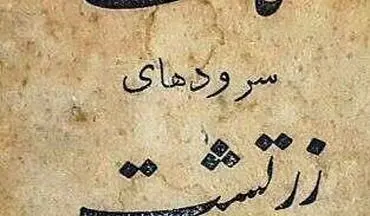 سرودهای
زرتشت